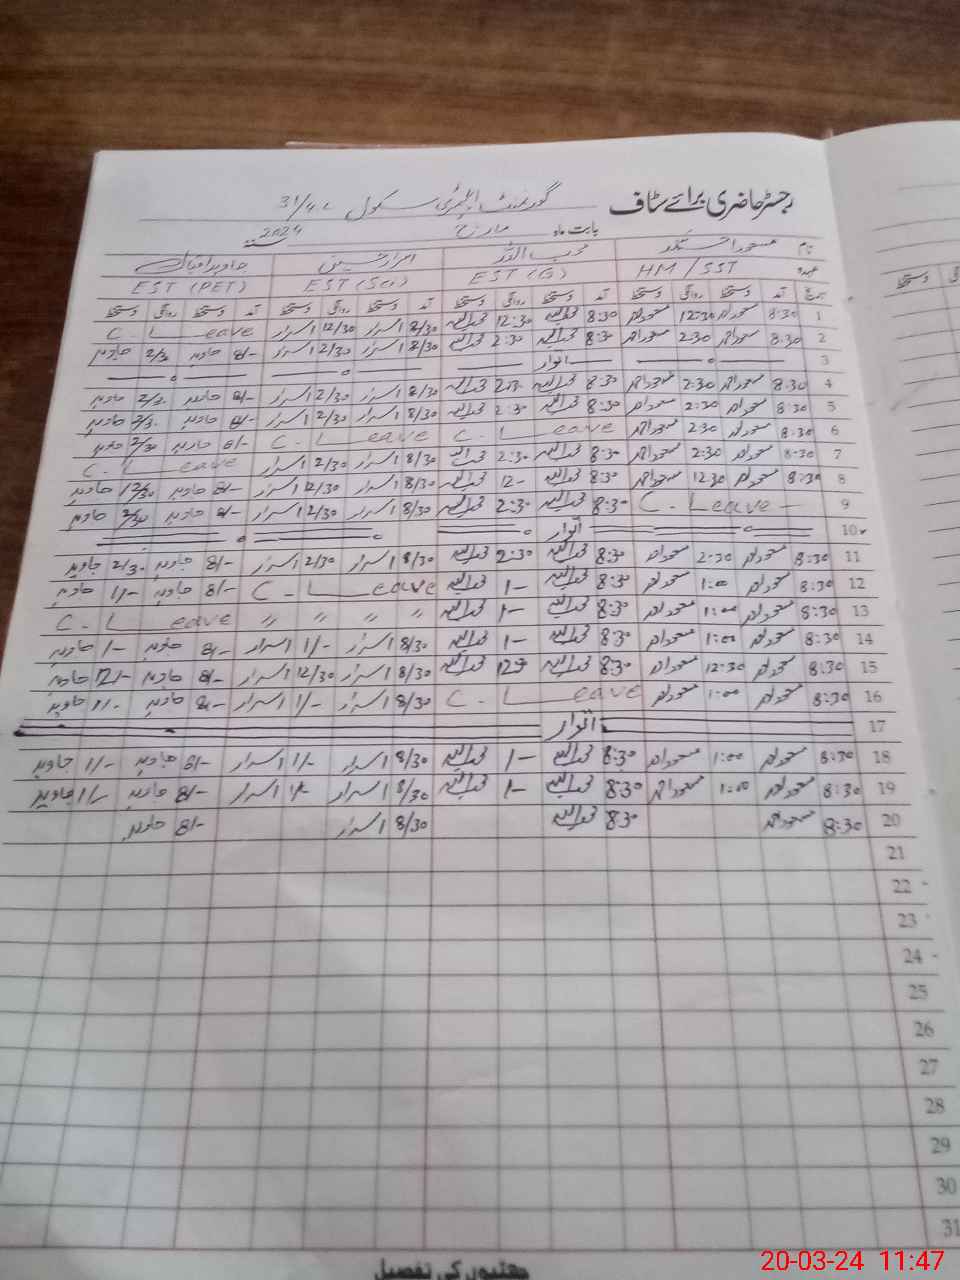 رجسٹر حاضری برائے سٹاف گورنمنٹ ایلیمنٹری سکول 31/4.L
بابت ماہ مارچ 2024
نام مسعود احمد محب اللہ اسرار جاوید اقبال
عہدہ HM / SST EST (G) EST (Sci) EST (PET)
تاریخ آمد دستخط روانگی دستخط آمد دستخط روانگی دستخط آمد دستخط روانگی دستخط آمد دستخط روانگی دستخط
1 8:30 مسعود احمد 12:30 مسعود احمد 8:30 محب اللہ 12:30 محب اللہ 8/30 اسرار 12/30 اسرار C. Leave
2 8:30 مسعود احمد 2:30 مسعود احمد 8:30 محب اللہ 2:30 محب اللہ 8/30 اسرار 2/30 اسرار 8/- جاوید 2/30 جاوید
3 اتوار
4 8:30 مسعود احمد 2:30 مسعود احمد 8:30 محب اللہ 2:30 محب اللہ 8/30 اسرار 2/30 اسرار 8/- جاوید 2/30 جاوید
5 8:30 مسعود احمد 2:30 مسعود احمد 8:30 محب اللہ 2:30 محب اللہ 8/30 اسرار 2/30 اسرار 8/- جاوید 2/30 جاوید
6 8:30 مسعود احمد 2:30 مسعود احمد C. Leave C. Leave 8/- جاوید 2/30 جاوید
7 8:30 مسعود احمد 2:30 مسعود احمد 8:30 محب اللہ 2:30 محب اللہ 8/30 اسرار 2/30 اسرار C. Leave
8 8:30 مسعود احمد 12:30 مسعود احمد 8:30 محب اللہ 12- محب اللہ 8/30 اسرار 12/30 اسرار 8/- جاوید 12/30 جاوید
9 C. Leave 8:30 محب اللہ 2:30 محب اللہ 8/30 اسرار 2/30 اسرار 8/- جاوید 2/30 جاوید
10 اتوار
11 8:30 مسعود احمد 2:30 مسعود احمد 8:30 محب اللہ 2:30 محب اللہ 8/30 اسرار 2/30 اسرار 8/- جاوید 2/30 جاوید
12 8:30 مسعود احمد 1:00 مسعود احمد 8:30 محب اللہ 1- محب اللہ C. Leave 8/- جاوید 1/- جاوید
13 8:30 مسعود احمد 1:00 مسعود احمد 8:30 محب اللہ 1- محب اللہ " " " " C. Leave
14 8:30 مسعود احمد 1:00 مسعود احمد 8:30 محب اللہ 1- محب اللہ 8/30 اسرار 1/- اسرار 8/- جاوید 1/- جاوید
15 8:30 مسعود احمد 12:30 مسعود احمد 8:30 محب اللہ محب اللہ 8/30 اسرار 12/30 اسرار 8/- جاوید 12/- جاوید
16 8:30 مسعود احمد 1:00 مسعود احمد C. Leave 8/30 اسرار 1/- اسرار 8/- جاوید 1/- جاوید
17 اتوار
18 8:30 مسعود احمد 1:00 مسعود احمد 8:30 محب اللہ 1- محب اللہ 8/30 اسرار 1/- اسرار 8/- جاوید 1/- جاوید
19 8:30 مسعود احمد 1:00 مسعود احمد 8:30 محب اللہ 1- محب اللہ 8/30 اسرار 1/- اسرار 8/- جاوید 1/- جاوید
20 8:30 مسعود احمد 8:30 محب اللہ 8/30 اسرار 8/- جاوید
21
22
23
24
25
26
27
28
29
30
31
چھٹیوں کی تفصیل
20-03-24 11:47